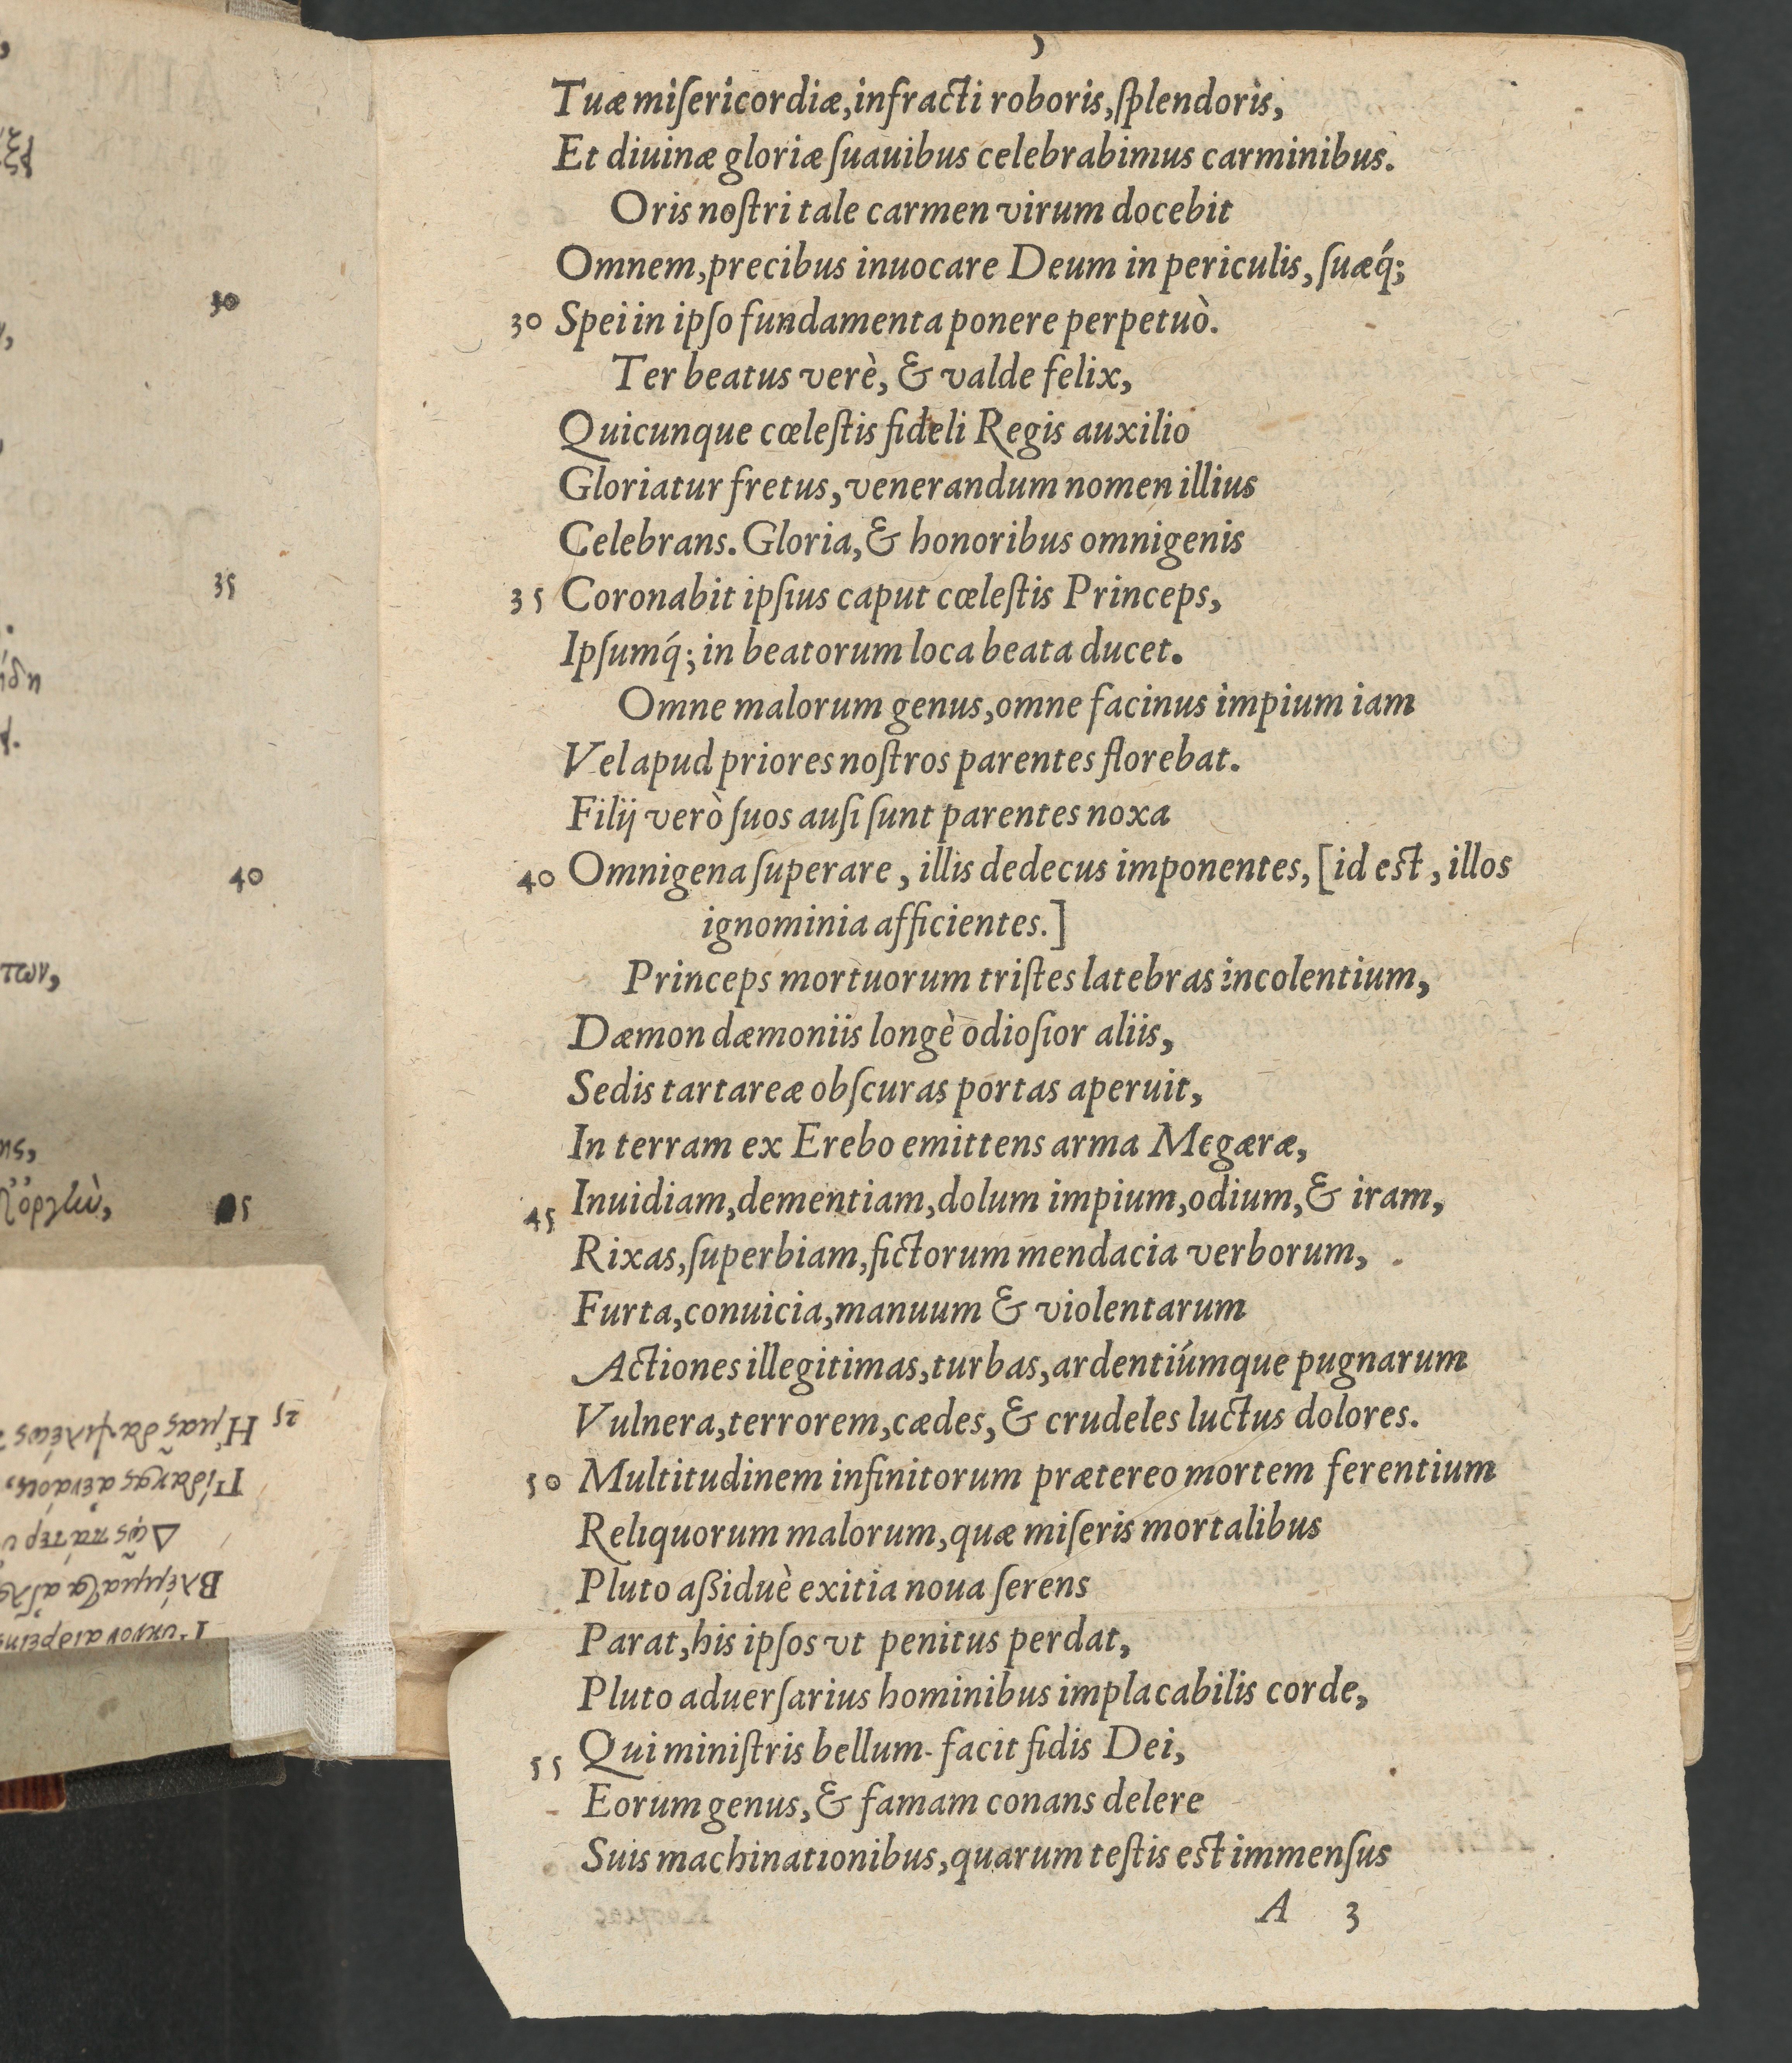 Tuæ miſericordiæ, infracti roboris, ſplendoris,
Et diuinæ gloriæ ſuauibus celebrabimus carminibus.
Oris noſtri tale carmen virum docebit
Omnem, precibus inuocare Deum in periculis, ſuæq́;
30 Spei in ipſo fundamenta ponere perpetuò.
Ter beatus verè, & valde felix,
Quicunque cœleſtis fideli Regis auxilio
Gloriatur fretus, venerandum nomen illius
Celebrans. Gloria, & honoribus omnigenis
35 Coronabit ipſius caput cœleſtis Princeps,
Ipſumq́; in beatorum loca beata ducet.
Omne malorum genus, omne facinus impium iam
Vel apud priores noſtros parentes florebat.
Filij verò ſuos auſi ſunt parentes noxa
40 Omnigena ſuperare, illis dedecus imponentes, [id est, illos
ignominia afficientes.]
Princeps mortuorum triſtes latebras incolentium,
Dæmon dæmoniis longè odioſior aliis,
Sedis tartareæ obſcuras portas aperuit,
In terram ex Erebo emittens arma Megæræ,
45 Inuidiam, dementiam, dolum impium, odium, & iram,
Rixas, ſuperbiam, fictorum mendacia verborum,
Furta, conuicia, manuum & violentarum
Actiones illegitimas, turbas, ardentiúmque pugnarum
Vulnera, terrorem, cædes, & crudeles luctus dolores.
50 Multitudinem infinitorum prætereo mortem ferentium
Reliquorum malorum, quæ miſeris mortalibus
Pluto aßiduè exitia noua ſerens
Parat, his ipſos vt penitus perdat,
Pluto aduerſarius hominibus implacabilis corde,
55 Qui miniſtris bellum facit fidis Dei,
Eorum genus, & famam conans delere
Suis machinationibus, quarum teſtis est immenſus
A 3
30
35
40
πων,
45
25